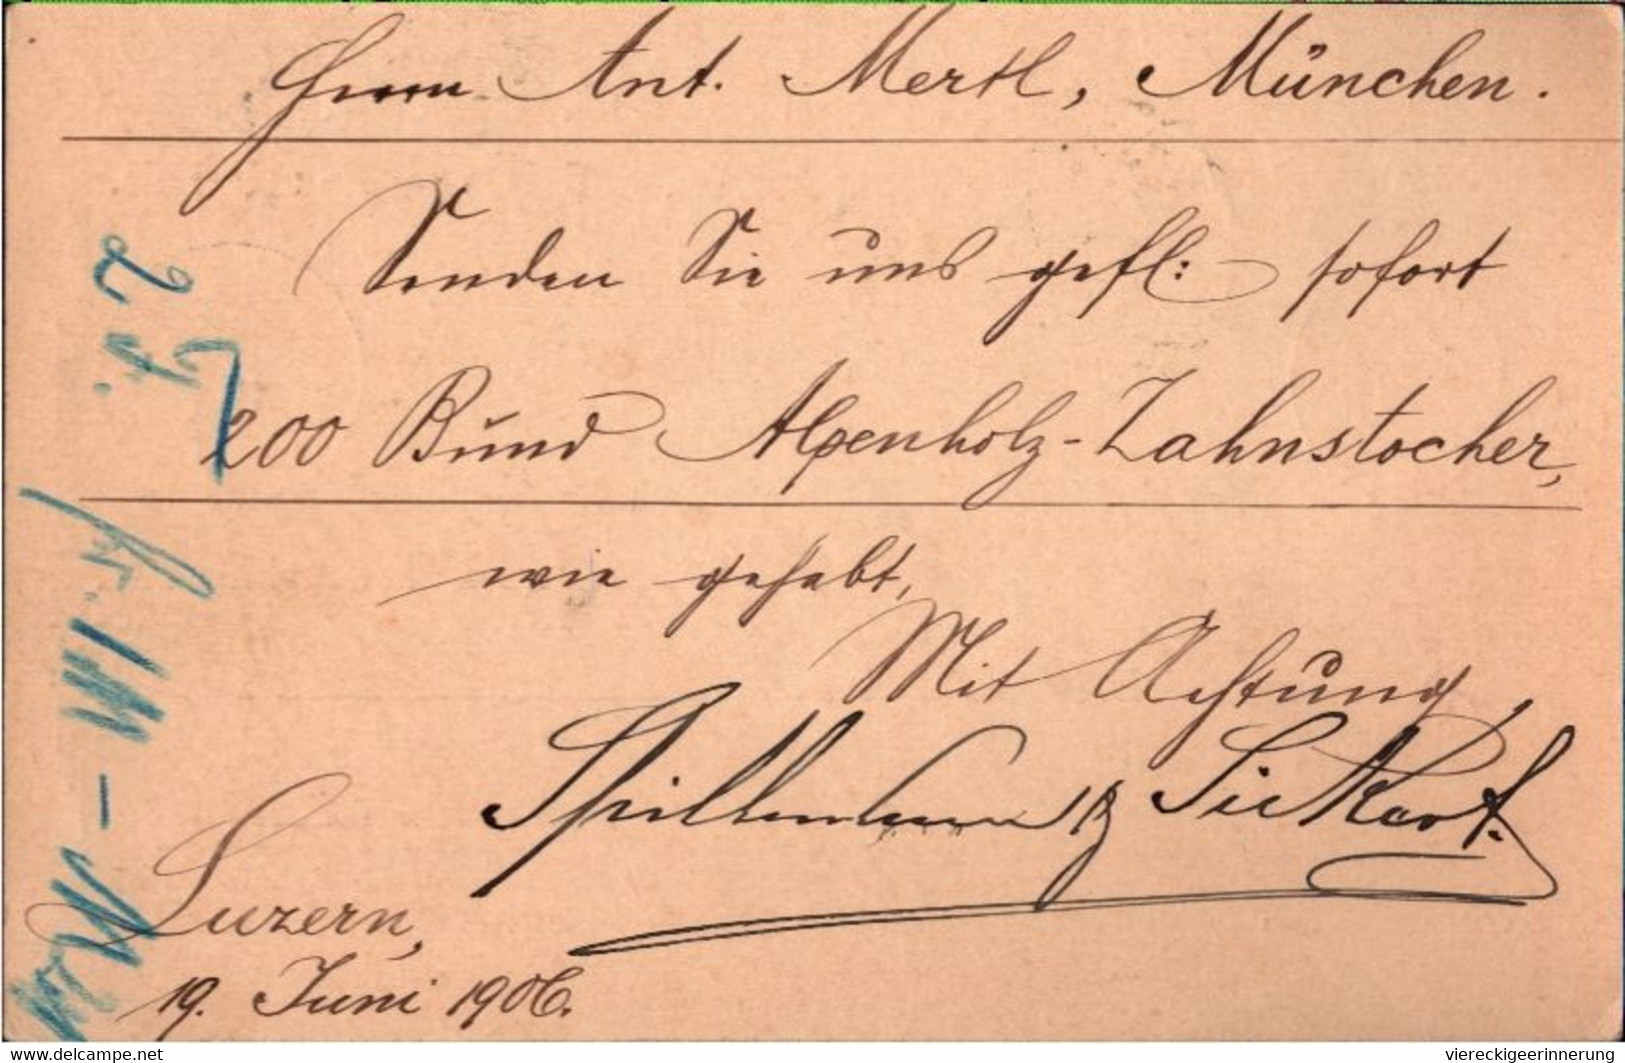 Herrn Ant. Mertl, München.
Senden Sie uns gefl: sofort
200 Bund Alpenholz-Zahnstocher,
wie gehabt,
Mit Achtung,
Spillmann & Sickert.
Luzern,
19. Juni 1906.
www.delcampe.net
viereckigeerinnerung